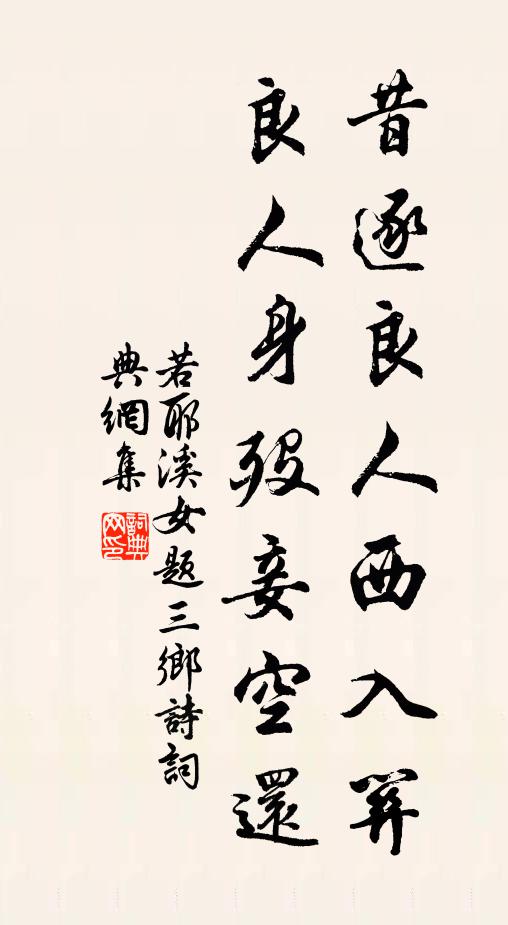 昔逐良人西入關
良人身歿妾空還
若耶溪女題三鄉詩詞
典網集
詞典
网印